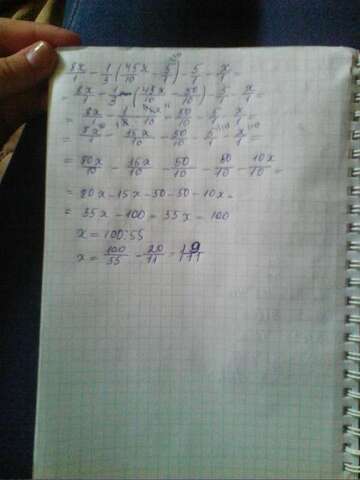 8x/1 - 1/3 (45x/10 - 5/1) - 5/1 - x/1 =
= 8x/1 - 1/3 (45x/10 - 50/10) - 5/1 - x/1 =
= 8x/1 - 1/1 15x/10 - 50/10 - 5/1 - x/1 =
= 8x/1 - 15x/10 - 50/10 - 5/1 - x/1 =
= 80x/10 - 15x/10 - 50/10 - 50/10 - 10x/10 =
= 80x - 15x - 50 - 50 - 10x =
= 55x - 100 = 55x - 100
x = 100:55
x = 100/55 = 20/11 = 1 9/11